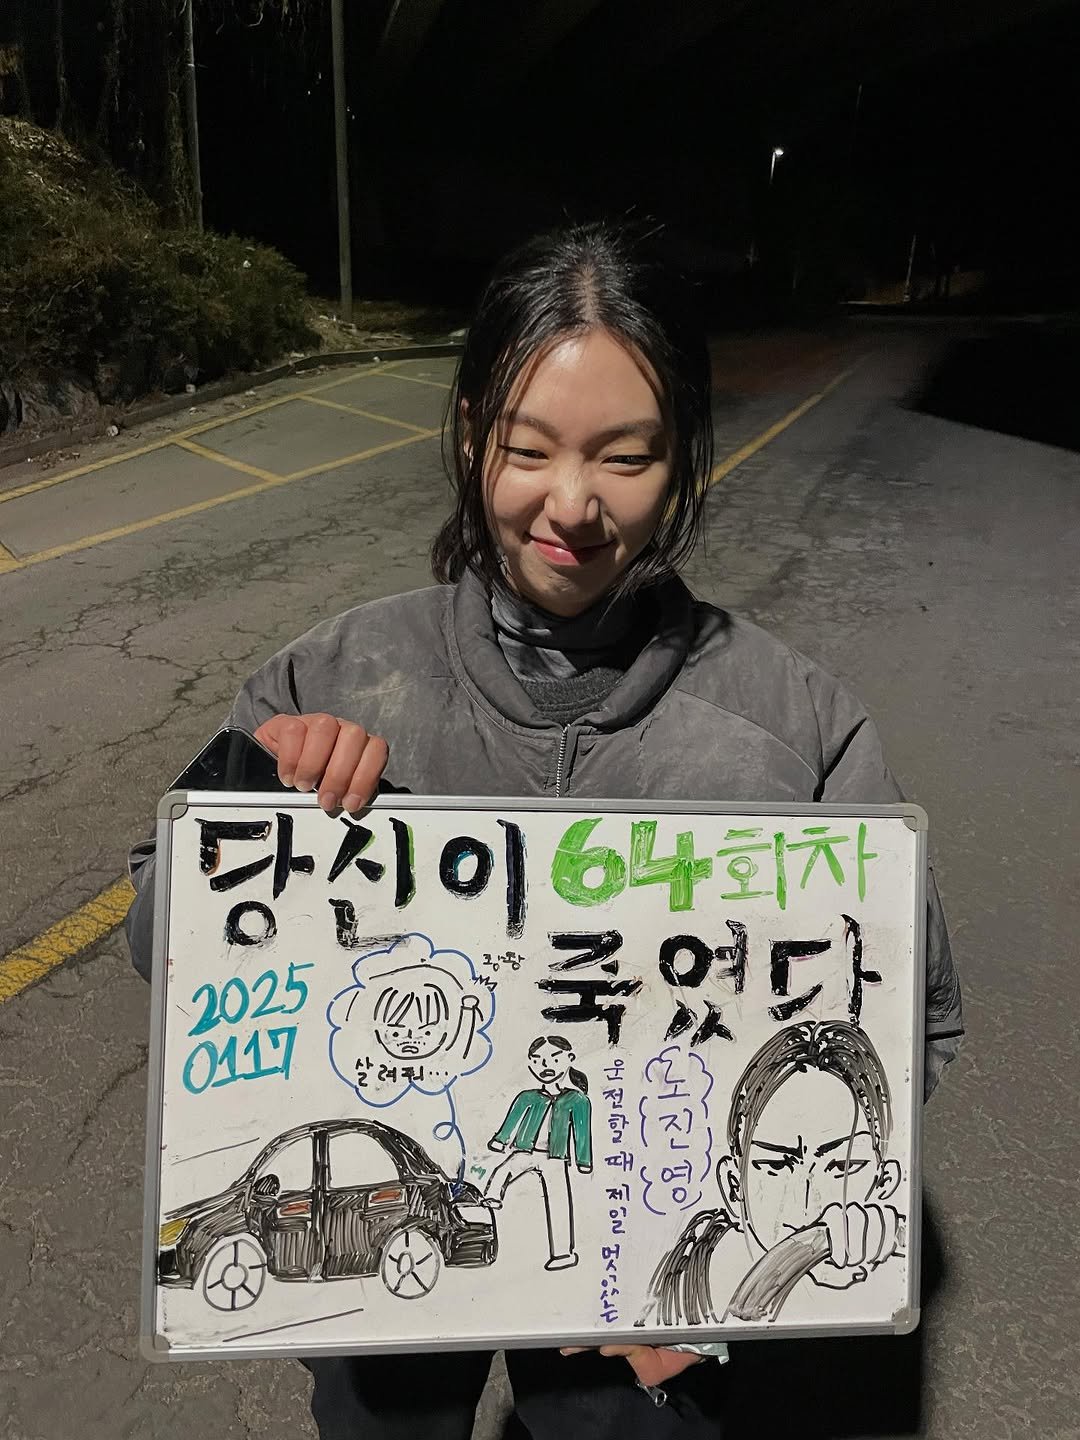 당신이 64회차
죽었다
2025
0117
쾅쾅
살려줘...
운전할 때 제일 멋있는
노진영